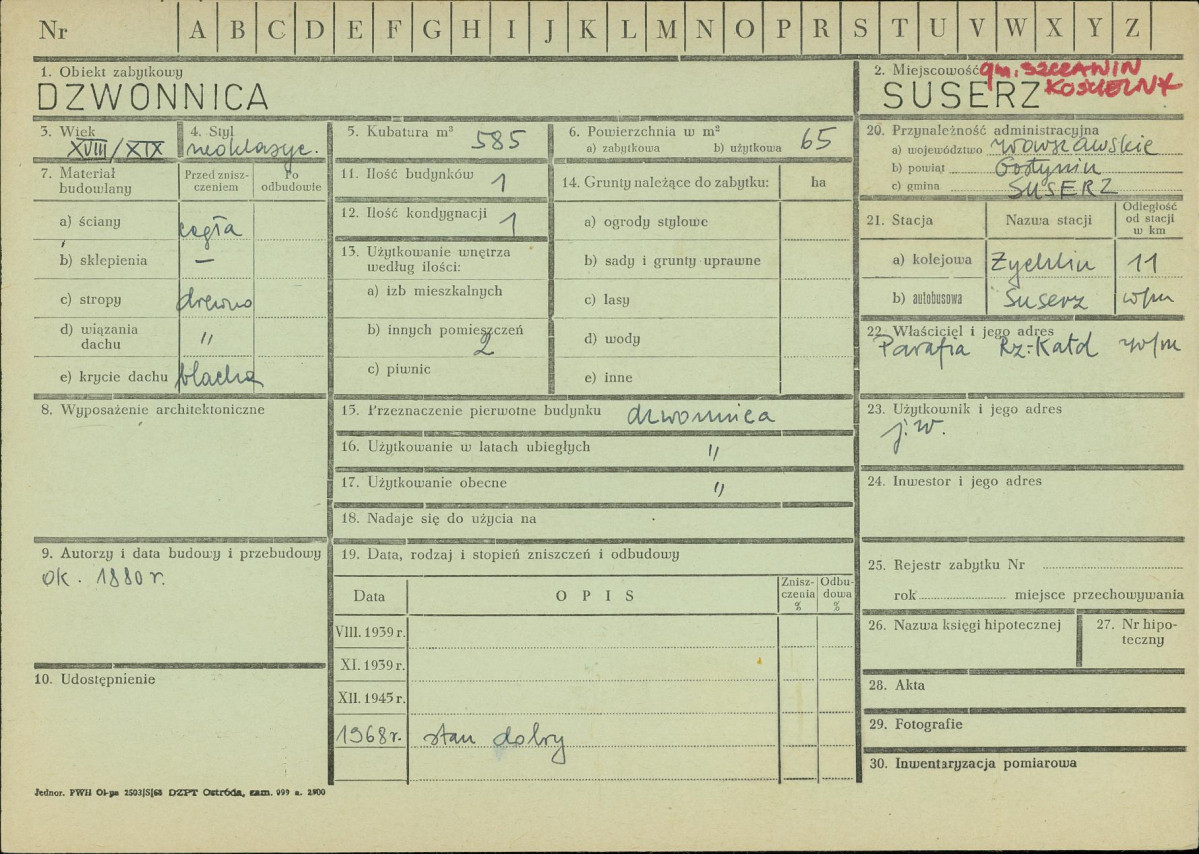 Nr A B C D E F G H I J K L M N O P R S T U V W X Y Z
1. Obiekt zabytkowy
DZWONNICA
2. Miejscowość gm. SZCZAWIN
KOŚCIELNY
SUSERZ
3. Wiek
XVIII/XIX
4. Styl
neoklasyc.
5. Kubatura m³ 585
6. Powierzchnia w m²
a) zabytkowa b) użytkowa 65
7. Materiał budowlany
Przed zniszczeniem
Po odbudowie
a) ściany cegła
b) sklepienia —
c) stropy drewno
d) wiązania dachu "
e) krycie dachu blacha
8. Wyposażenie architektoniczne
9. Autorzy i data budowy i przebudowy
ok. 1880 r.
10. Udostępnienie
11. Ilość budynków 1
12. Ilość kondygnacji 1
13. Użytkowanie wnętrza
według ilości:
a) izb mieszkalnych
b) innych pomieszczeń
2
c) piwnic
14. Grunty należące do zabytku: ha
a) ogrody stylowe
b) sady i grunty uprawne
c) lasy
d) wody
e) inne
15. Przeznaczenie pierwotne budynku dzwonnica
16. Użytkowanie w latach ubiegłych "
17. Użytkowanie obecne "
18. Nadaje się do użycia na
19. Data, rodzaj i stopień zniszczeń i odbudowy
Data OPIS Zniszczenia % Odbudowa %
VIII. 1939 r.
XI. 1939 r.
XII. 1945 r.
1968 r. stan dobry
20. Przynależność administracyjna
a) województwo warszawskie
b) powiat Gostynin
c) gmina SUSERZ
21. Stacja Nazwa stacji Odległość od stacji w km
a) kolejowa Żychlin 11
b) autobusowa Suserz w/m
22. Właściciel i jego adres
Parafia Rz-Katd w/m
23. Użytkownik i jego adres
j.w.
24. Inwestor i jego adres
25. Rejestr zabytku Nr
rok miejsce przechowywania
26. Nazwa księgi hipotecznej
27. Nr hipoteczny
28. Akta
29. Fotografie
30. Inwentaryzacja pomiarowa
Jednor. PWH Ol-pa 2503/S/68 DZPT Ostróda, zam. 099 n. 2500